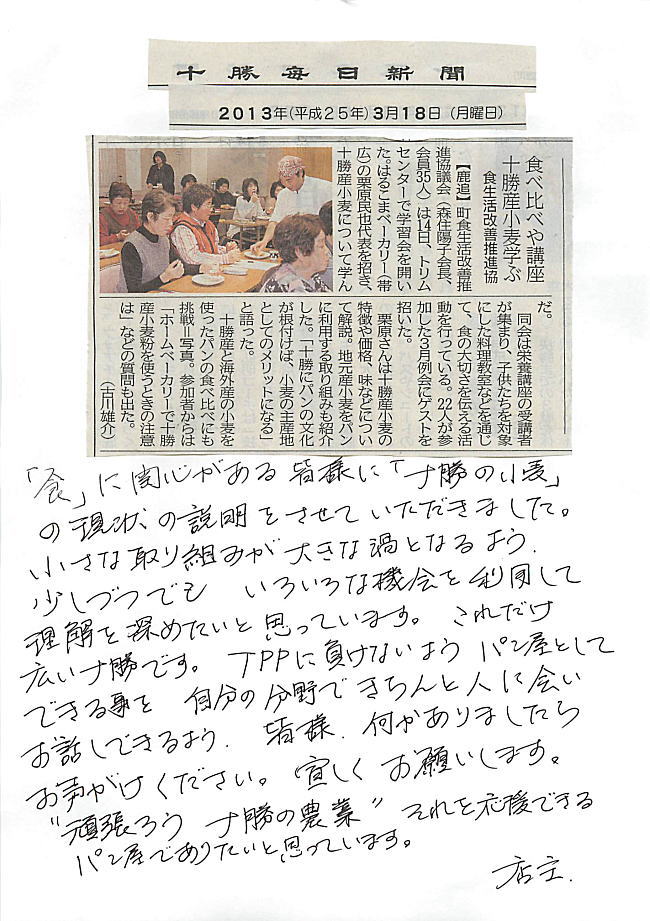 十勝毎日新聞
2013年(平成25年)3月18日(月曜日)
食べ比べや講座
十勝産小麦学ぶ
食生活改善推進協
【鹿追】町食生活改善推
進協議会(森住陽子会長、
会員35人)は14日、トリム
センターで学習会を開い
た。はるこまベーカリー(帯
広)の栗原民也代表を招き、
十勝産小麦について学ん
だ。
同会は栄養講座の受講者
が集まり、子供たちを対象
にした料理教室などを通じ
て、食の大切さを伝える活
動を行っている。22人が参
加した3月例会にゲストを
招いた。
栗原さんは十勝産小麦の
特徴や価格、味などについ
て解説。地元産小麦をパン
に利用する取り組みも紹介
した。「十勝にパンの文化
が根付けば、小麦の主産地
としてのメリットになる」
と語った。
十勝産と海外産の小麦を
使ったパンの食べ比べにも
挑戦=写真。参加者からは
「ホームベーカリーで十勝
産小麦粉を使うときの注意
は」などの質問も出た。
(古川雄介)
「食」に関心がある皆様に「十勝の小麦」
の現状の説明をさせていただきました。
小さな取り組みが大きな渦となるよう、
少しづつでも いろいろな機会を利用して
理解を深めたいと思っています。これだけ
広い十勝です。TPPに負けないようパン屋として
できる事を 自分の分野できちんと人に会い
お話しできるよう、皆様、何かありましたら
お声がけください。宜しくお願いします。
"頑張ろう 十勝の農業" それを応援できる
パン屋でありたいと思っています。
店主.